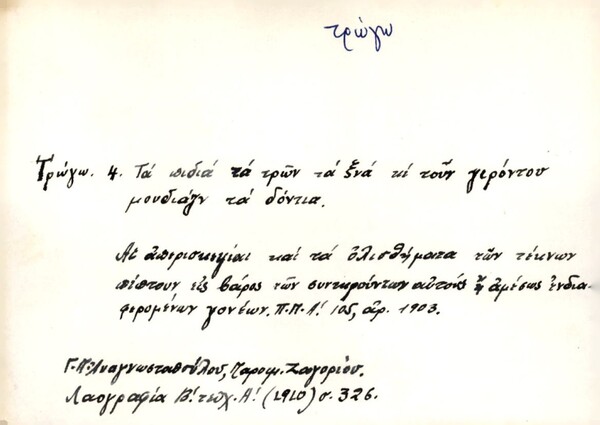 τρώγω
Τρώγω. 4. Τά πιδιά τά τρῶν τά ξ'νά κί τοῦν γερόντου
μουδιάζν τά δόντια.
Αἱ ἀπερισκεψίαι καί τά ὀλισθήματα τῶν τέκνων
πίπτουν εἰς βάρος τῶν συντηρούντων αὐτούς ἤ ἀμέσως ἐνδια-
φερομένων γονέων. Π.Π.Α! 105, ἀρ. 1903.
Γ.Π. Ἀναγνωστοπούλου, Παροιμ. Ζαγορίου.
Λαογραφία Β! τεύχ. Α! (1910) σ. 326.